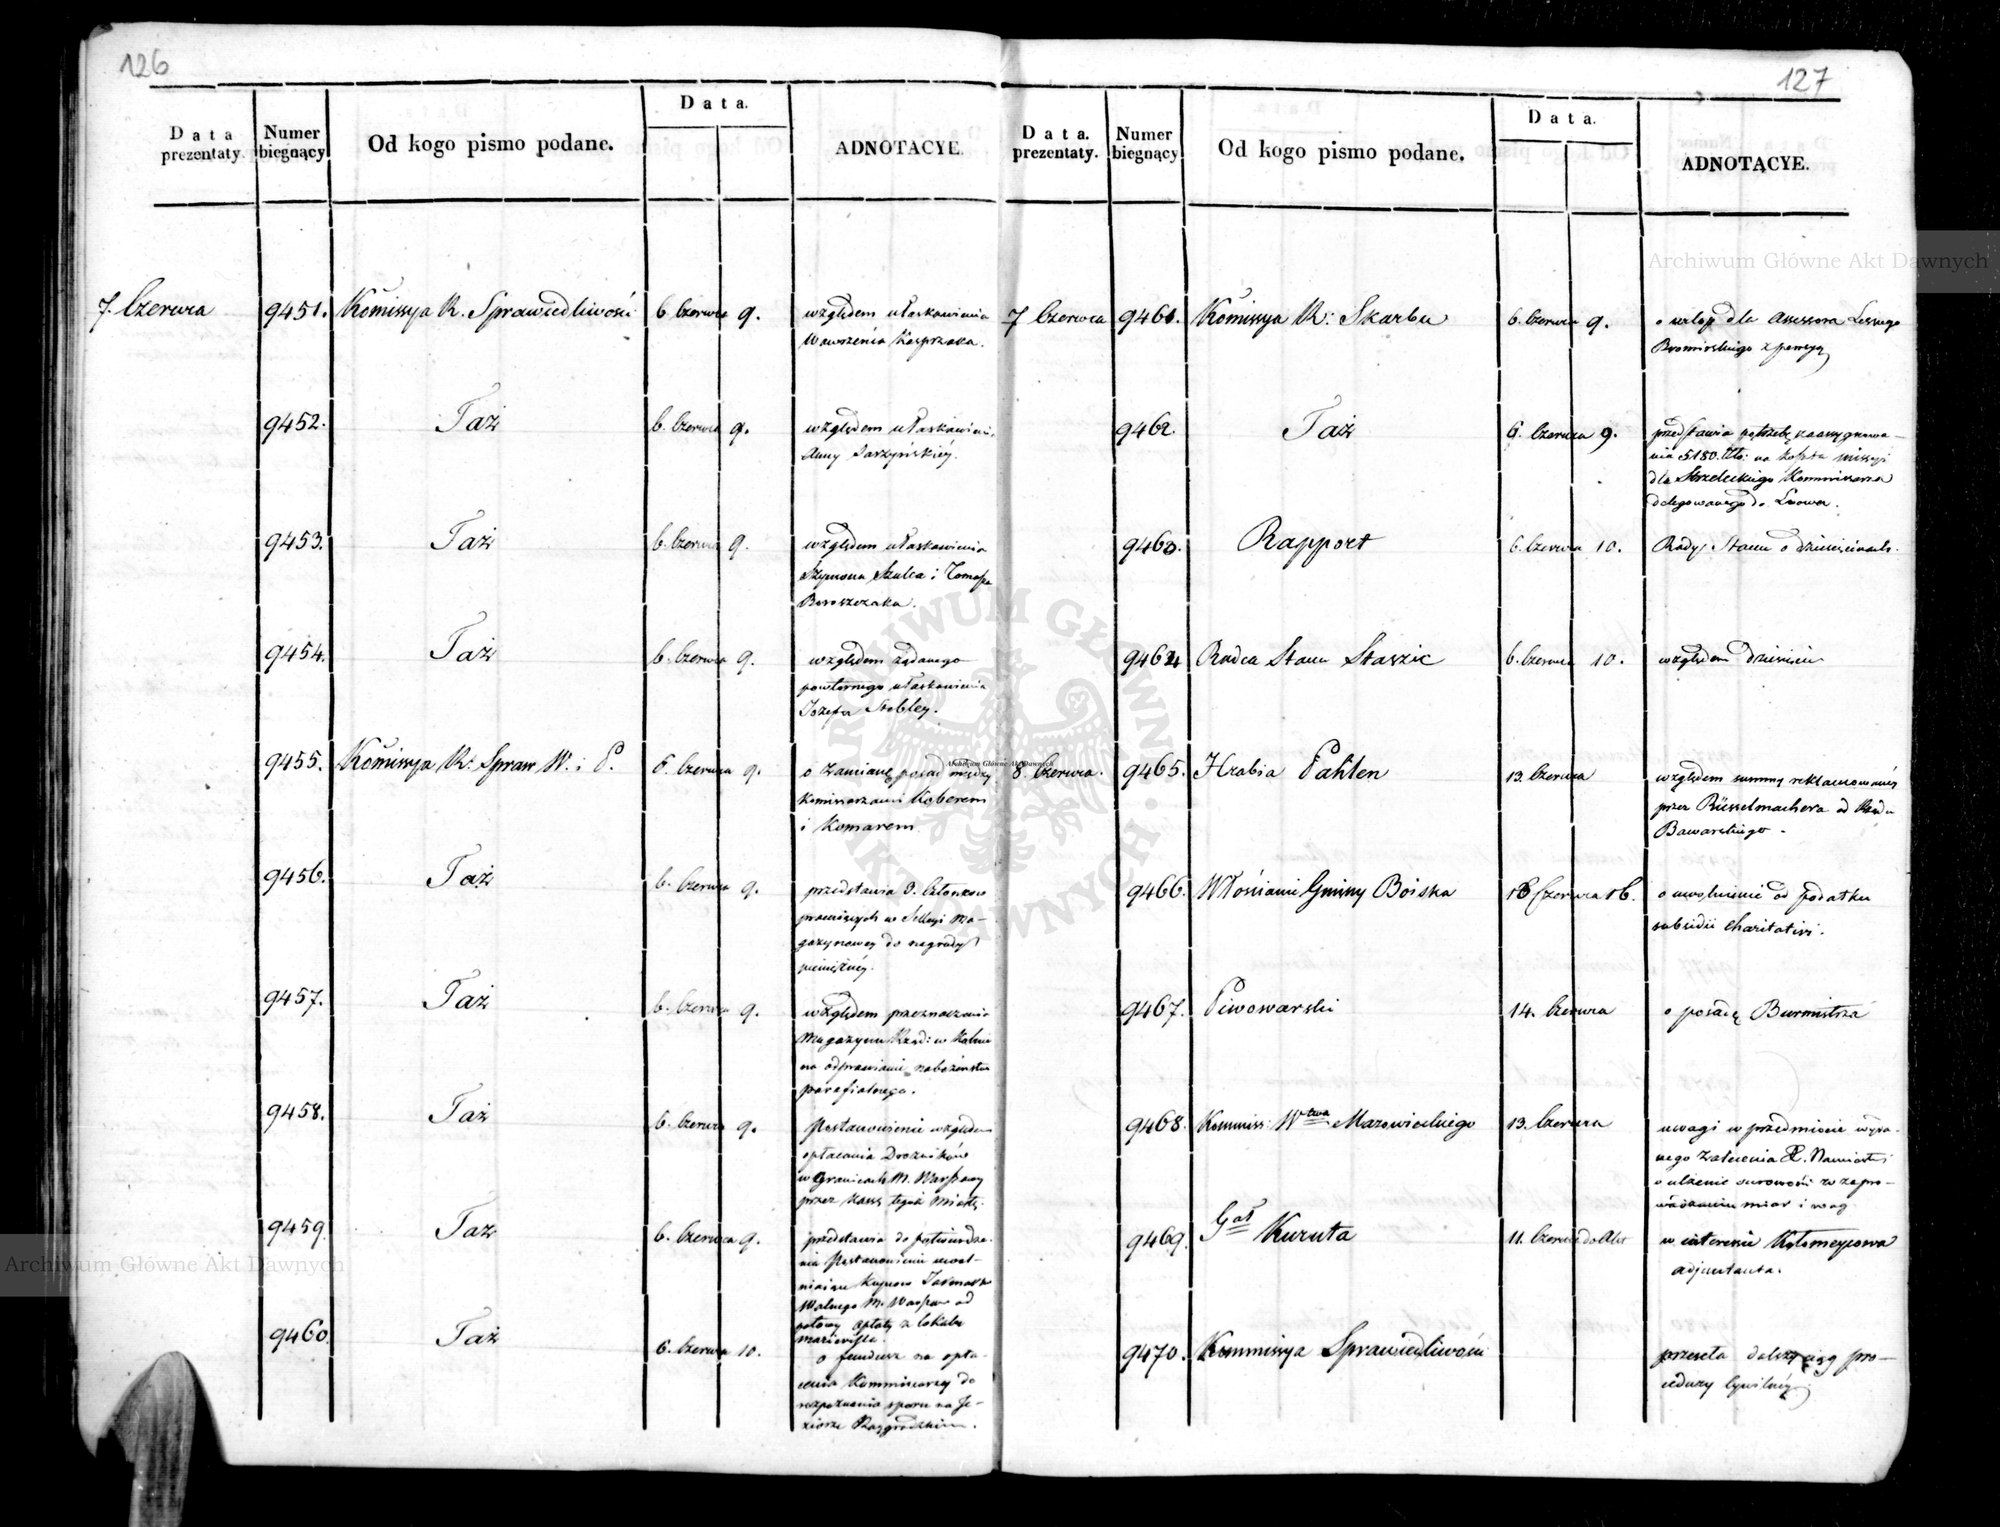 126
Data prezentaty.
Numer biegnący
Od kogo pismo podane.
Data.
ADNOTACYE.
7. Czerwca 9451. Kom̃issya R. Sprawiedliwości 6. Czerwca 9. względem ułaskawienia
Wawrzeńca Kasprzaka.
9452. Taż 6. Czerwca 9. względem ułaskawieni
Anny Sarzyńskiéy.
9453. Taż 6. Czerwca 9. względem ułaskawienia
Szymona Szulca i Tomasza
9454. Taż 6. Czerwca 9. względem żądanego
powtórnego ułaskawienia
Józefa
9455. Kom̃issya R. Spraw W. i P. 6. Czerwca 9. o zamianę posad między
Kommissarzami Koberem
i Komarem
9456. Taż 6. Czerwca 9. przedstawia Członków
pracuiących w Sekcyi Ma-
gazynowey do nagrody
pieniężnéy.
9457. Taż 6. Czerwca 9. względem przeznaczenia
Magazynu Rząd: w
na odprawianie nabożeństwa
parafialnego.
9458. Taż 6. Czerwca 9. Postanowienie względem
opłacania Drożników
w Granicach M. Warszawy
przez Kassę tegoż Miasta.
9459. Taż 6. Czerwca 9. przedstawia do potwierdze-
nia Postanowienie uwol-
niaiące Kupców
Walnego M. Warszaw od
połowy opłaty z lokalu
9460. Taż 6. Czerwca 10. o fundusz na opła-
cenie Kommissarzy do
rozpoznania sporu na Je-
ziorze Raygrodzkim.
127
Data. prezentaty.
Numer biegnący
Od kogo pismo podane.
Data.
ADNOTACYE.
7 Czerwca 9461. Kom̃issya R: Skarbu 6. Czerwca 9. o urlop dla Assessora Leśnego
z pensyą
9462. Taż 6. Czerwca 9. przedstawia potrzebę zaassygnowa-
nia 5180. na koszta missyi
dla Strzeleckiego Kommissarza
delegowanego do Lwowa.
9463. Rapport 6. Czerwca 10. Rady Stanu o dziesięcinach.
9464 Radca Stanu Staszic 6. Czerwca 10. względem dziesięcin
8. Czerwca. 9465. Hrabia Pahlen 13. Czerwca względem summy reklamowanéy
przez od Rządu
Bawarskiego.
9466. Włościanie Gminy Boiska 16 Czerwca 16. o uwolnienie od podatku
subsidii charitativi.
9467. Piwowarski 14. Czerwca o posadę Burmistrza
9468. Kommiss: Wtwa Mazowieckiego 13. Czerwca uwagi w przedmiocie wyda-
nego zalecenia X. Namiestni
w zapro-
wadzeniu miar i wag
9469. Gał Kuruta 11. Czerwca w interesie
adjutanta.
9470. Kommissya Sprawiedliwości przesyła dalszy ciąg pro-
cedury Cywilnéy.
Archiwum Główne Akt Dawnych
Archiwum Główne Akt Dawnych
Archiwum Główne Akt Dawnych
ARCHIWUM GŁÓWNE AKT DAWNYCH